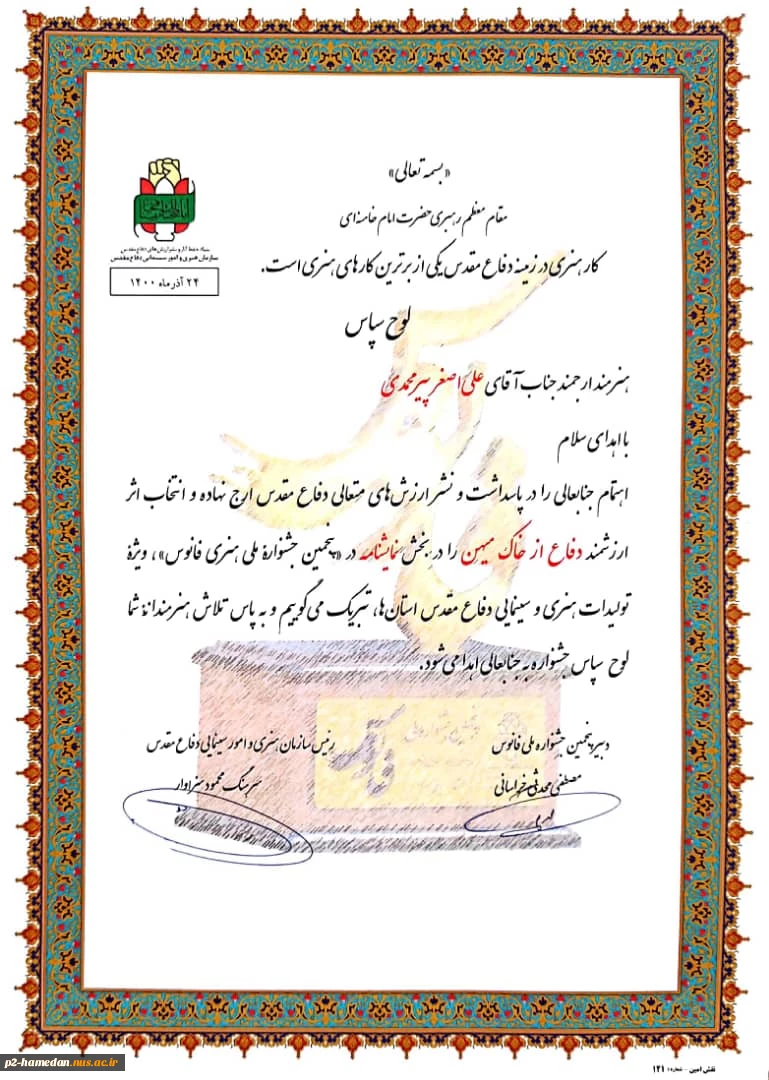 «بسمه تعالی»
مقام معظم رهبری حضرت امام خامنه‌ای
کار هنری در زمینهٔ دفاع مقدس یکی از برترین کارهای هنری است.
بنیاد حفظ آثار و نشر ارزش‌های دفاع مقدس
سازمان هنری و امور سینمایی دفاع مقدس
۲۴ آذر ماه ۱۴۰۰
لوح سپاس
هنرمند ارجمند جناب آقای علی اصغر پیرمحمدی
با اهدای سلام
اهتمام جنابعالی را در پاسداشت و نشر ارزش‌های متعالی دفاع مقدس ارج نهاده و انتخاب اثر
ارزشمند دفاع از خاک میهن را در بخش نمایشنامه در «پنجمین جشنوارهٔ ملی هنری فانوس»، ویژهٔ
تولیدات هنری و سینمایی دفاع مقدس استان‌ها، تبریک می‌گوییم و به پاس تلاش هنرمندانهٔ شما
لوح سپاس جشنواره به جنابعالی اهدا می‌شود.
دبیر پنجمین جشنواره ملی فانوس
مصطفی محدثی خراسانی
رئیس سازمان هنری و امور سینمایی دفاع مقدس
سرهنگ محمود سزاوار
p2-hamedan.nus.ac.ir
نقش امین - شماره: ۱۴۱